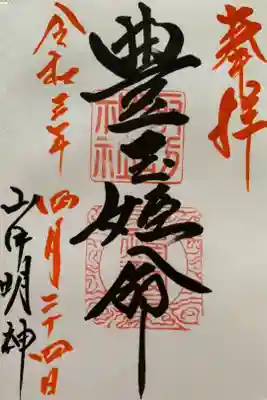 奉拝
豊玉姫命
令和三年四月二十四日
山中明神